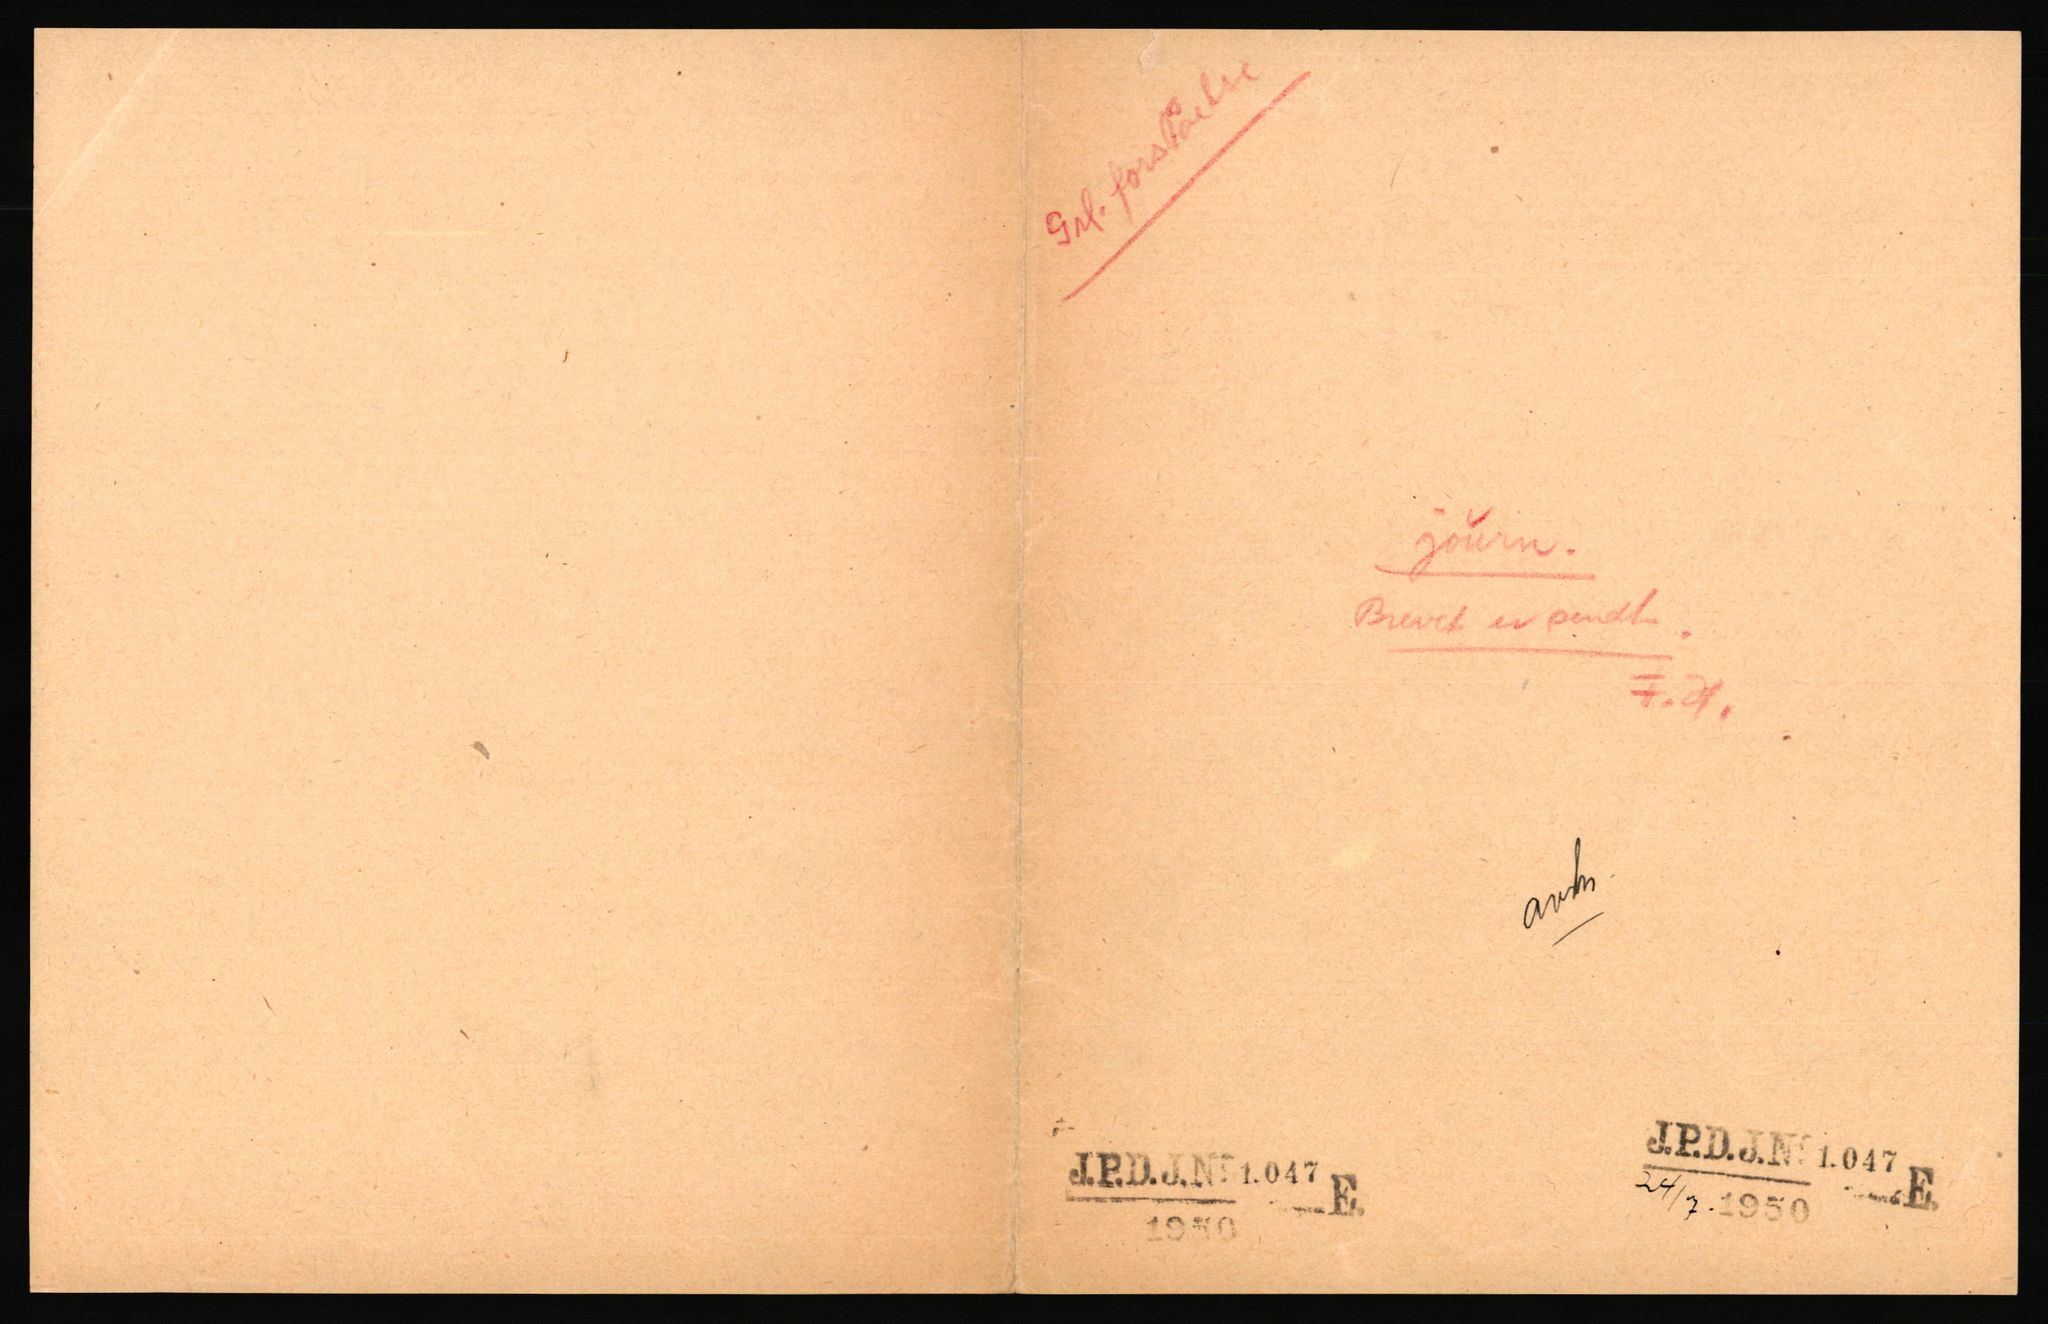 Grl. forståelse
journ.
Brevet er sendt.
F.H.
J.P.D.J.Nr 1.047 E.
1950
J.P.D.J.Nr 1.047 E.
24/7. 1950